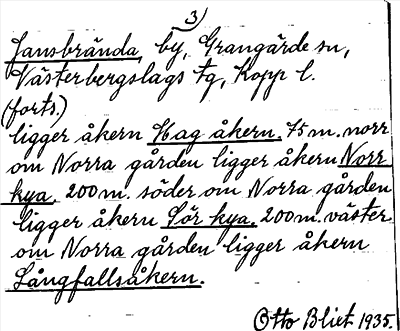 3)
Jansbrända, by, Grangärde sn,
Västerbergslags tg, Kopp l.
(forts.)
ligger åkern Hag åkern. 75 m. norr
om Norra gården ligger åkern Norr
kya. 200 m. söder om Norra gården
ligger åkern Sör kya. 200 m. väster
om Norra gården ligger åkern
Långfallsåkern.
Otto Blixt 1935.